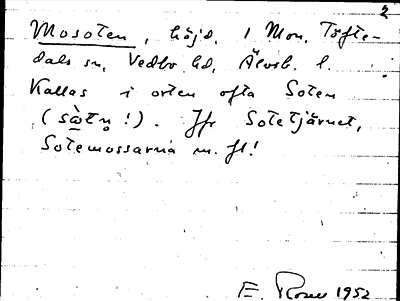 2
Mosoten, höjd, 1 Mon. Töfte-
dals sn, Vedbo hd, Älvsb. l.
Kallas i orten ofta Soten
(sὰtn̥!). Jfr Sotetjärnet,
Sotemossarna m. fl!
E. Rosell 1952